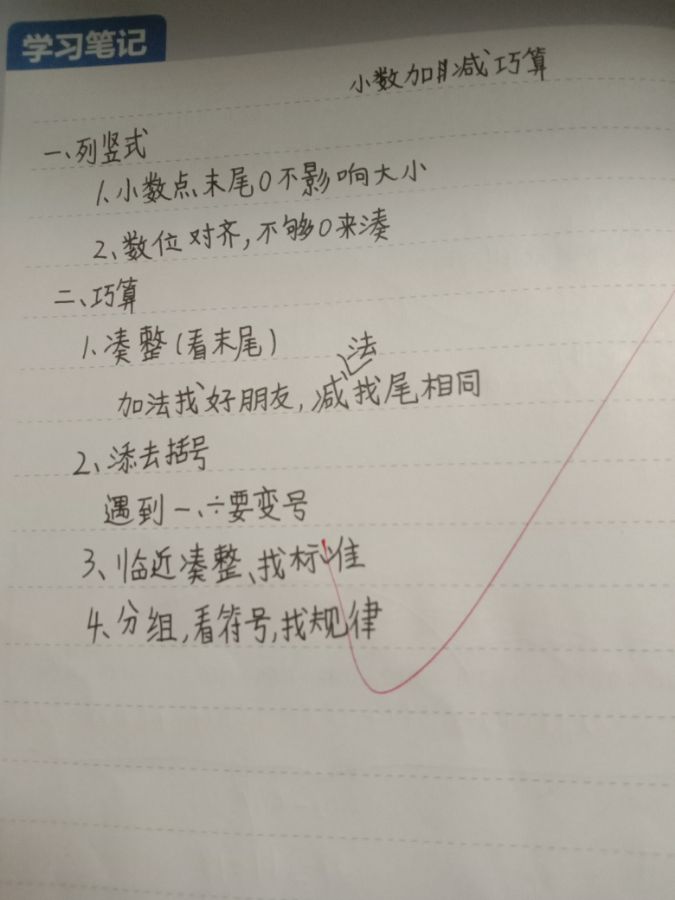 学习笔记
小数加减巧算
一、列竖式
1、小数点末尾0不影响大小
2、数位对齐,不够0来凑
二、巧算
1、凑整(看末尾)
加法找好朋友,减法找尾相同
2、添去括号
遇到-、÷要变号
3、临近凑整、找标准
4、分组,看符号,找规律